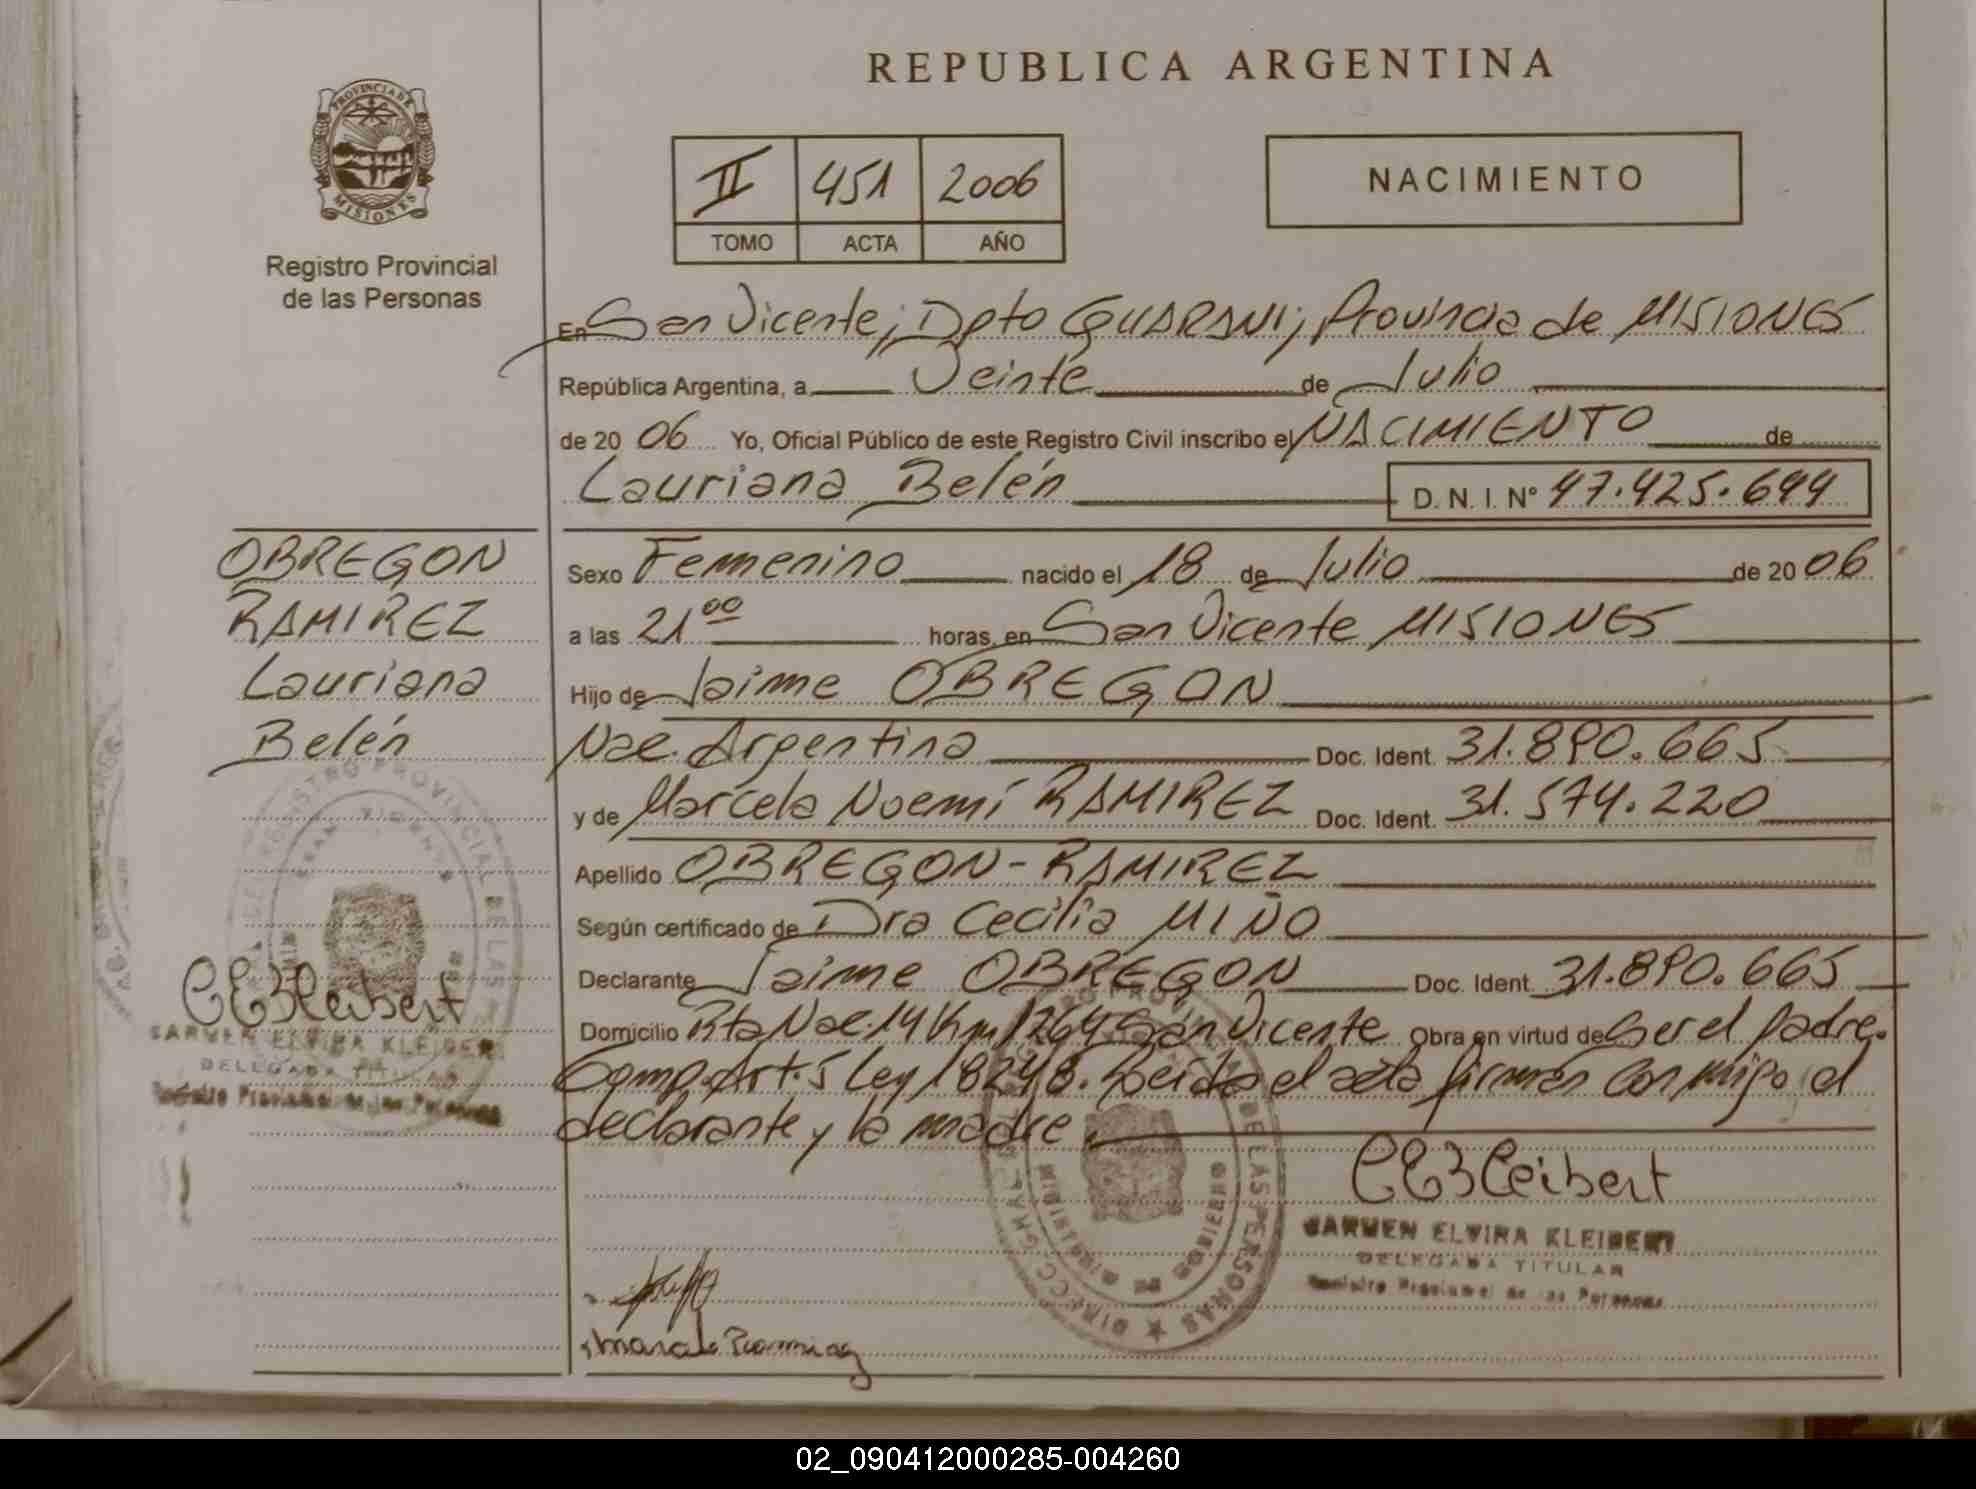 REPUBLICA ARGENTINA
PROVINCIA DE
MISIONES
Registro Provincial
de las Personas
II 451 2006
TOMO ACTA AÑO
NACIMIENTO
En San Vicente, Dpto GUARANI, Provincia de MISIONES
República Argentina, a Veinte de Julio
de 20 06 Yo, Oficial Público de este Registro Civil inscribo el NACIMIENTO de
Lauriana Belén D. N. I. N° 47.425.644
OBREGON
RAMIREZ
Lauriana
Belén
Sexo Femenino nacido el 18 de Julio de 20 06
a las 21 00 horas, en San Vicente MISIONES
Hijo de Jaime OBREGON
Nac. Argentina Doc. Ident. 31.890.665
y de Marcela Noemí RAMIREZ Doc. Ident. 31.574.220
Apellido OBREGON - RAMIREZ
Según certificado de Dra Cecilia MIÑO
Declarante Jaime OBREGON Doc. Ident. 31.890.665
Domicilio Rta Nac. 14 Km 1264 San Vicente Obra en virtud de Ser el padre.
Comp. Art. 5 Ley 18248. Leída el acta firman conmigo el
declarante y la madre.
CEKleibert
CARMEN ELVIRA KLEIBERT
DELEGADA TITULAR
Registro Provincial de las Personas
CEKleibert
CARMEN ELVIRA KLEIBERT
DELEGADA TITULAR
Registro Provincial de las Personas
REGISTRO PROVINCIAL DE LAS
DIRECC. GRAL. REGISTRO PROVINCIAL DE LAS PERSONAS
MINISTERIO DE GOBIERNO
Marcela Ramirez
02_090412000285-004260